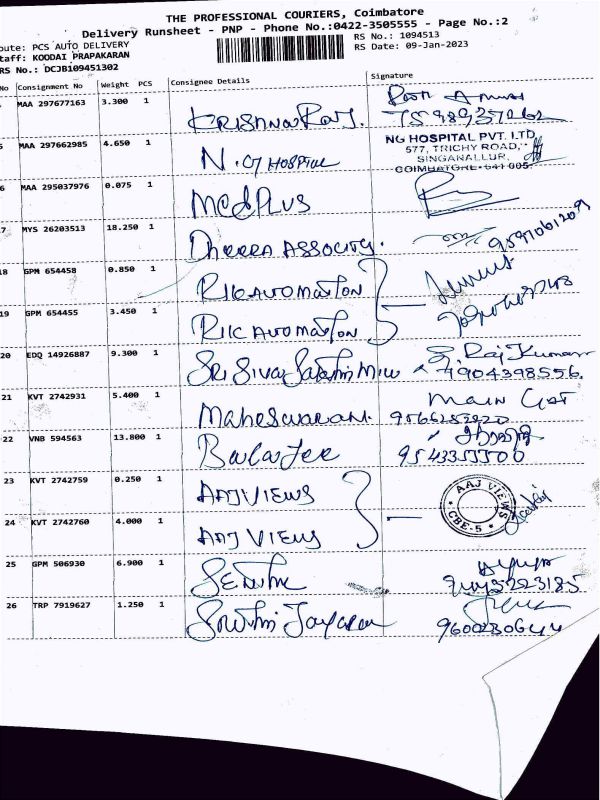 THE PROFESSIONAL COURIERS, Coimbatore
Delivery Runsheet - PNP - Phone No.:0422-3505555 - Page No.:2
oute: PCS AUTO DELIVERY RS No.: 1094513
taff: KOODAI PRAPAKARAN RS Date: 09-Jan-2023
RS No.: DCJB109451302
No Consignment No Weight PCS Consignee Details Signature
MAA 297677163 3.300 1 KRISHNA RAJ.
MAA 297662985 4.650 1 N.G HOSPITAL NG HOSPITAL PVT. LTD
577, TRICHY ROAD,
SINGANALLUR,
COIMBATORE-641 005.
6 MAA 295037976 0.075 1 MEDPLUS
7 MYS 26203513 18.250 1 9597061209
18 GPM 654458 0.850 1 RIK AUTOMATION
19 GPM 654455 3.450 1 RIK AUTOMATION
20 EDQ 14926887 9.300 1 SRI SIVA SAKTHI MILL S. Raj Kumar
9904398556.
21 KVT 2742931 5.400 1 MAHESWARAN.
22 VNB 594563 13.800 1
9543355500
23 KVT 2742759 0.250 1 AAJ VIEWS AAJ VIEWS
* CBE-5 *
24 KVT 2742760 4.000 1 AAJ VIEWS
25 GPM 506930 6.900 1
26 TRP 7919627 1.250 1
9600230644